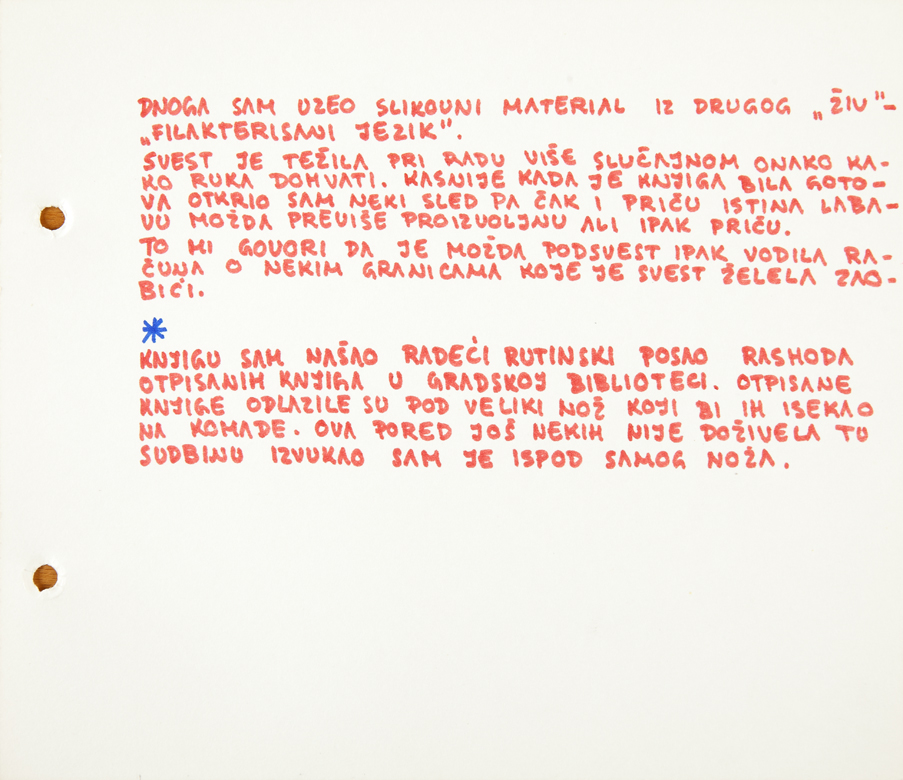 DNOGA SAM UZEO SLIKOVNI MATERIAL IZ DRUGOG „ŽIV"-
„FILAKTERISANI JEZIK".
SVEST JE TEŽILA PRI RADU VIŠE SLUČAJNOM ONAKO KA-
KO RUKA DOHVATI. KASNIJE KADA JE KNJIGA BILA GOTO-
VA OTKRIO SAM NEKI SLED PA ČAK I PRIČU ISTINA LABA-
VU MOŽDA PREVIŠE PROIZVOLJNU ALI IPAK PRIČU.
TO MI GOVORI DA JE MOŽDA PODSVEST IPAK VODILA RA-
ČUNA O NEKIM GRANICAMA KOJE JE SVEST ŽELELA ZAO-
BIĆI.
*
KNJIGU SAM NAŠAO RADEĆI RUTINSKI POSAO RASHODA
OTPISANIH KNJIGA U GRADSKOJ BIBLIOTECI. OTPISANE
KNJIGE ODLAZILE SU POD VELIKI NOŽ KOJI BI IH ISEKAO
NA KOMADE. OVA PORED JOŠ NEKIH NIJE DOŽIVELA TU
SUDBINU IZVUKAO SAM JE ISPOD SAMOG NOŽA.